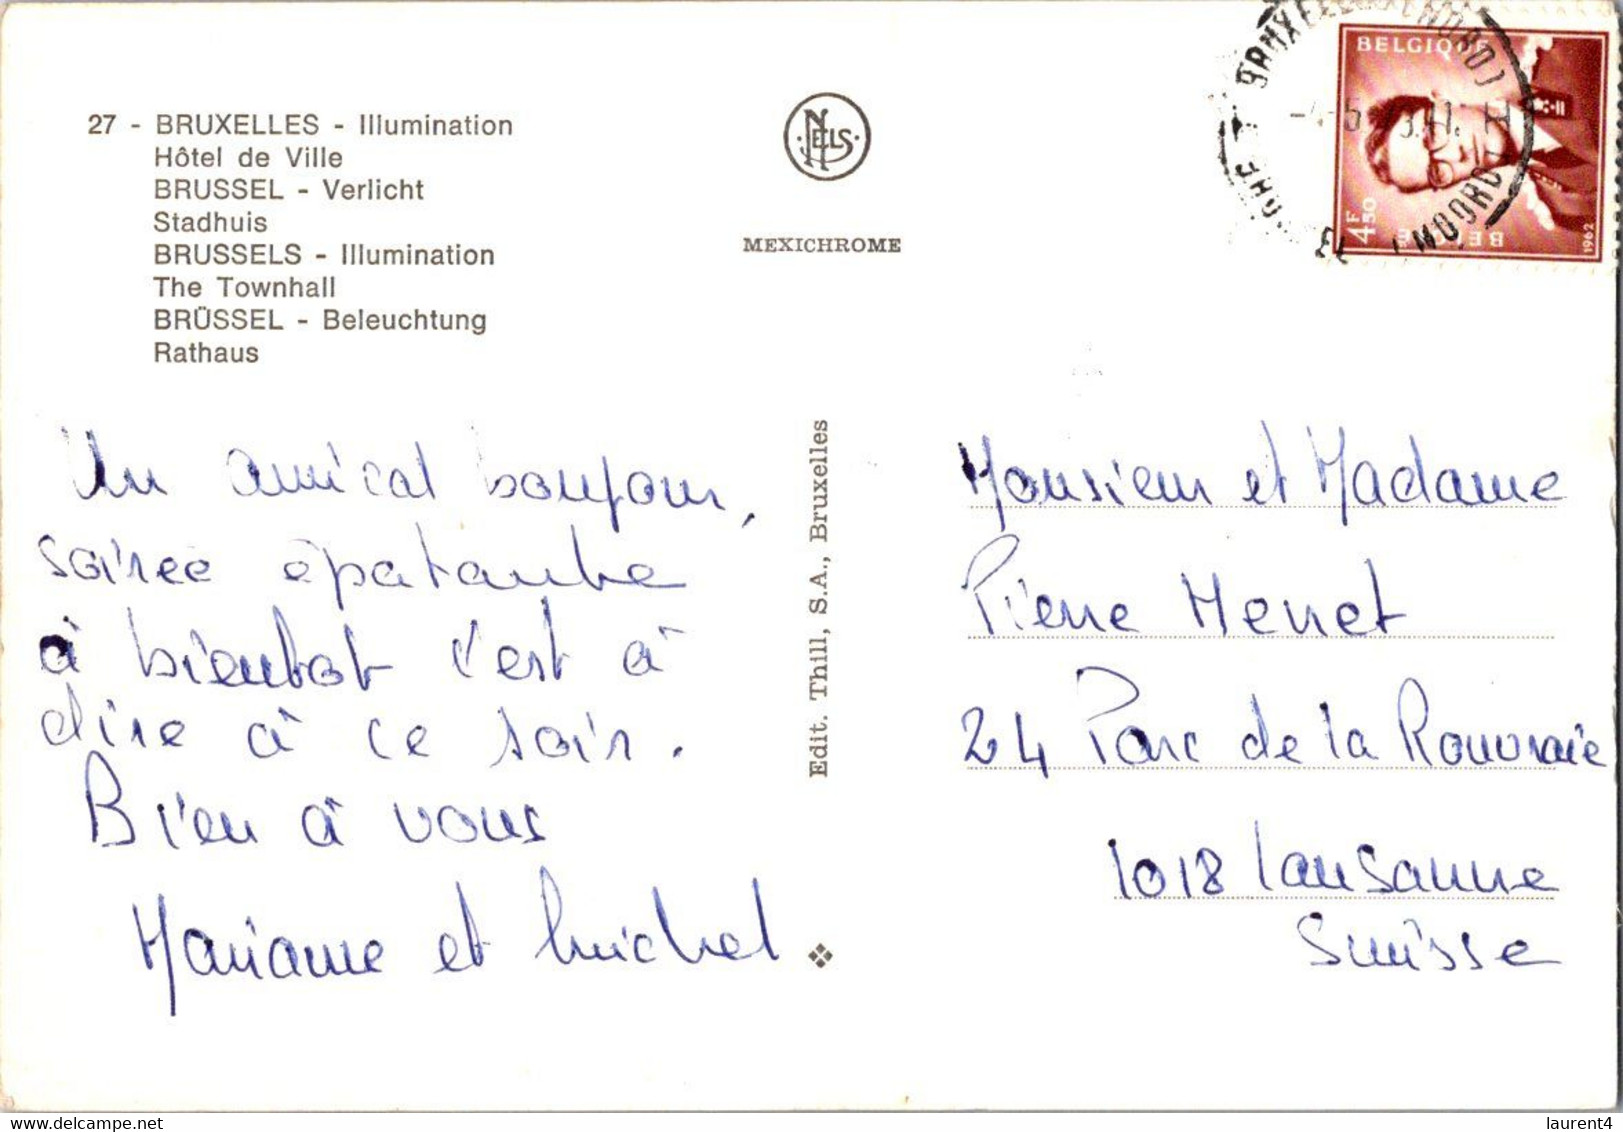 27 - BRUXELLES - Illumination
Hôtel de Ville
BRUSSEL - Verlicht
Stadhuis
BRUSSELS - Illumination
The Townhall
BRÜSSEL - Beleuchtung
Rathaus
NELS
MEXICHROME
BELGIQUE
4F50
BELGIE
1962
Un amical bonjour,
soirée épatante
à bientot c'est à
dire à ce soir.
Bien à vous
Mariane et Michel
Edit. Thill, S.A., Bruxelles
Monsieur et Madame
Pierre Menet
24 Parc de la Rouvraie
1018 Lausanne
Suisse
laurent4